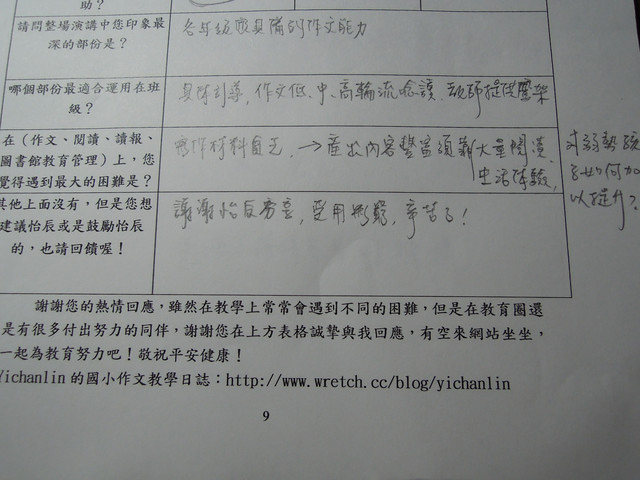 助？
請問整場演講中您印象最
深的部份是？
各年級應具備的作文能力
哪個部份最適合運用在班
級？
作文低、中、高輪流唸讀、教師提供鷹架
在（作文、閱讀、讀報、
圖書館教育管理）上，您
覺得遇到最大的困難是？
寫作材料貧乏，→產出內容豐富須靠大量閱讀、
生活体驗，
對弱勢孩
子如何加
以提升？
其他上面沒有，但是您想
建議怡辰或是鼓勵怡辰
的，也請回饋喔！
謝謝怡辰老師，受用無窮，辛苦了！
謝謝您的熱情回應，雖然在教學上常常會遇到不同的困難，但是在教育圈還
是有很多付出努力的同伴，謝謝您在上方表格誠摯與我回應，有空來網站坐坐，
一起為教育努力吧！敬祝平安健康！
Yichanlin 的國小作文教學日誌：http://www.wretch.cc/blog/yichanlin
9